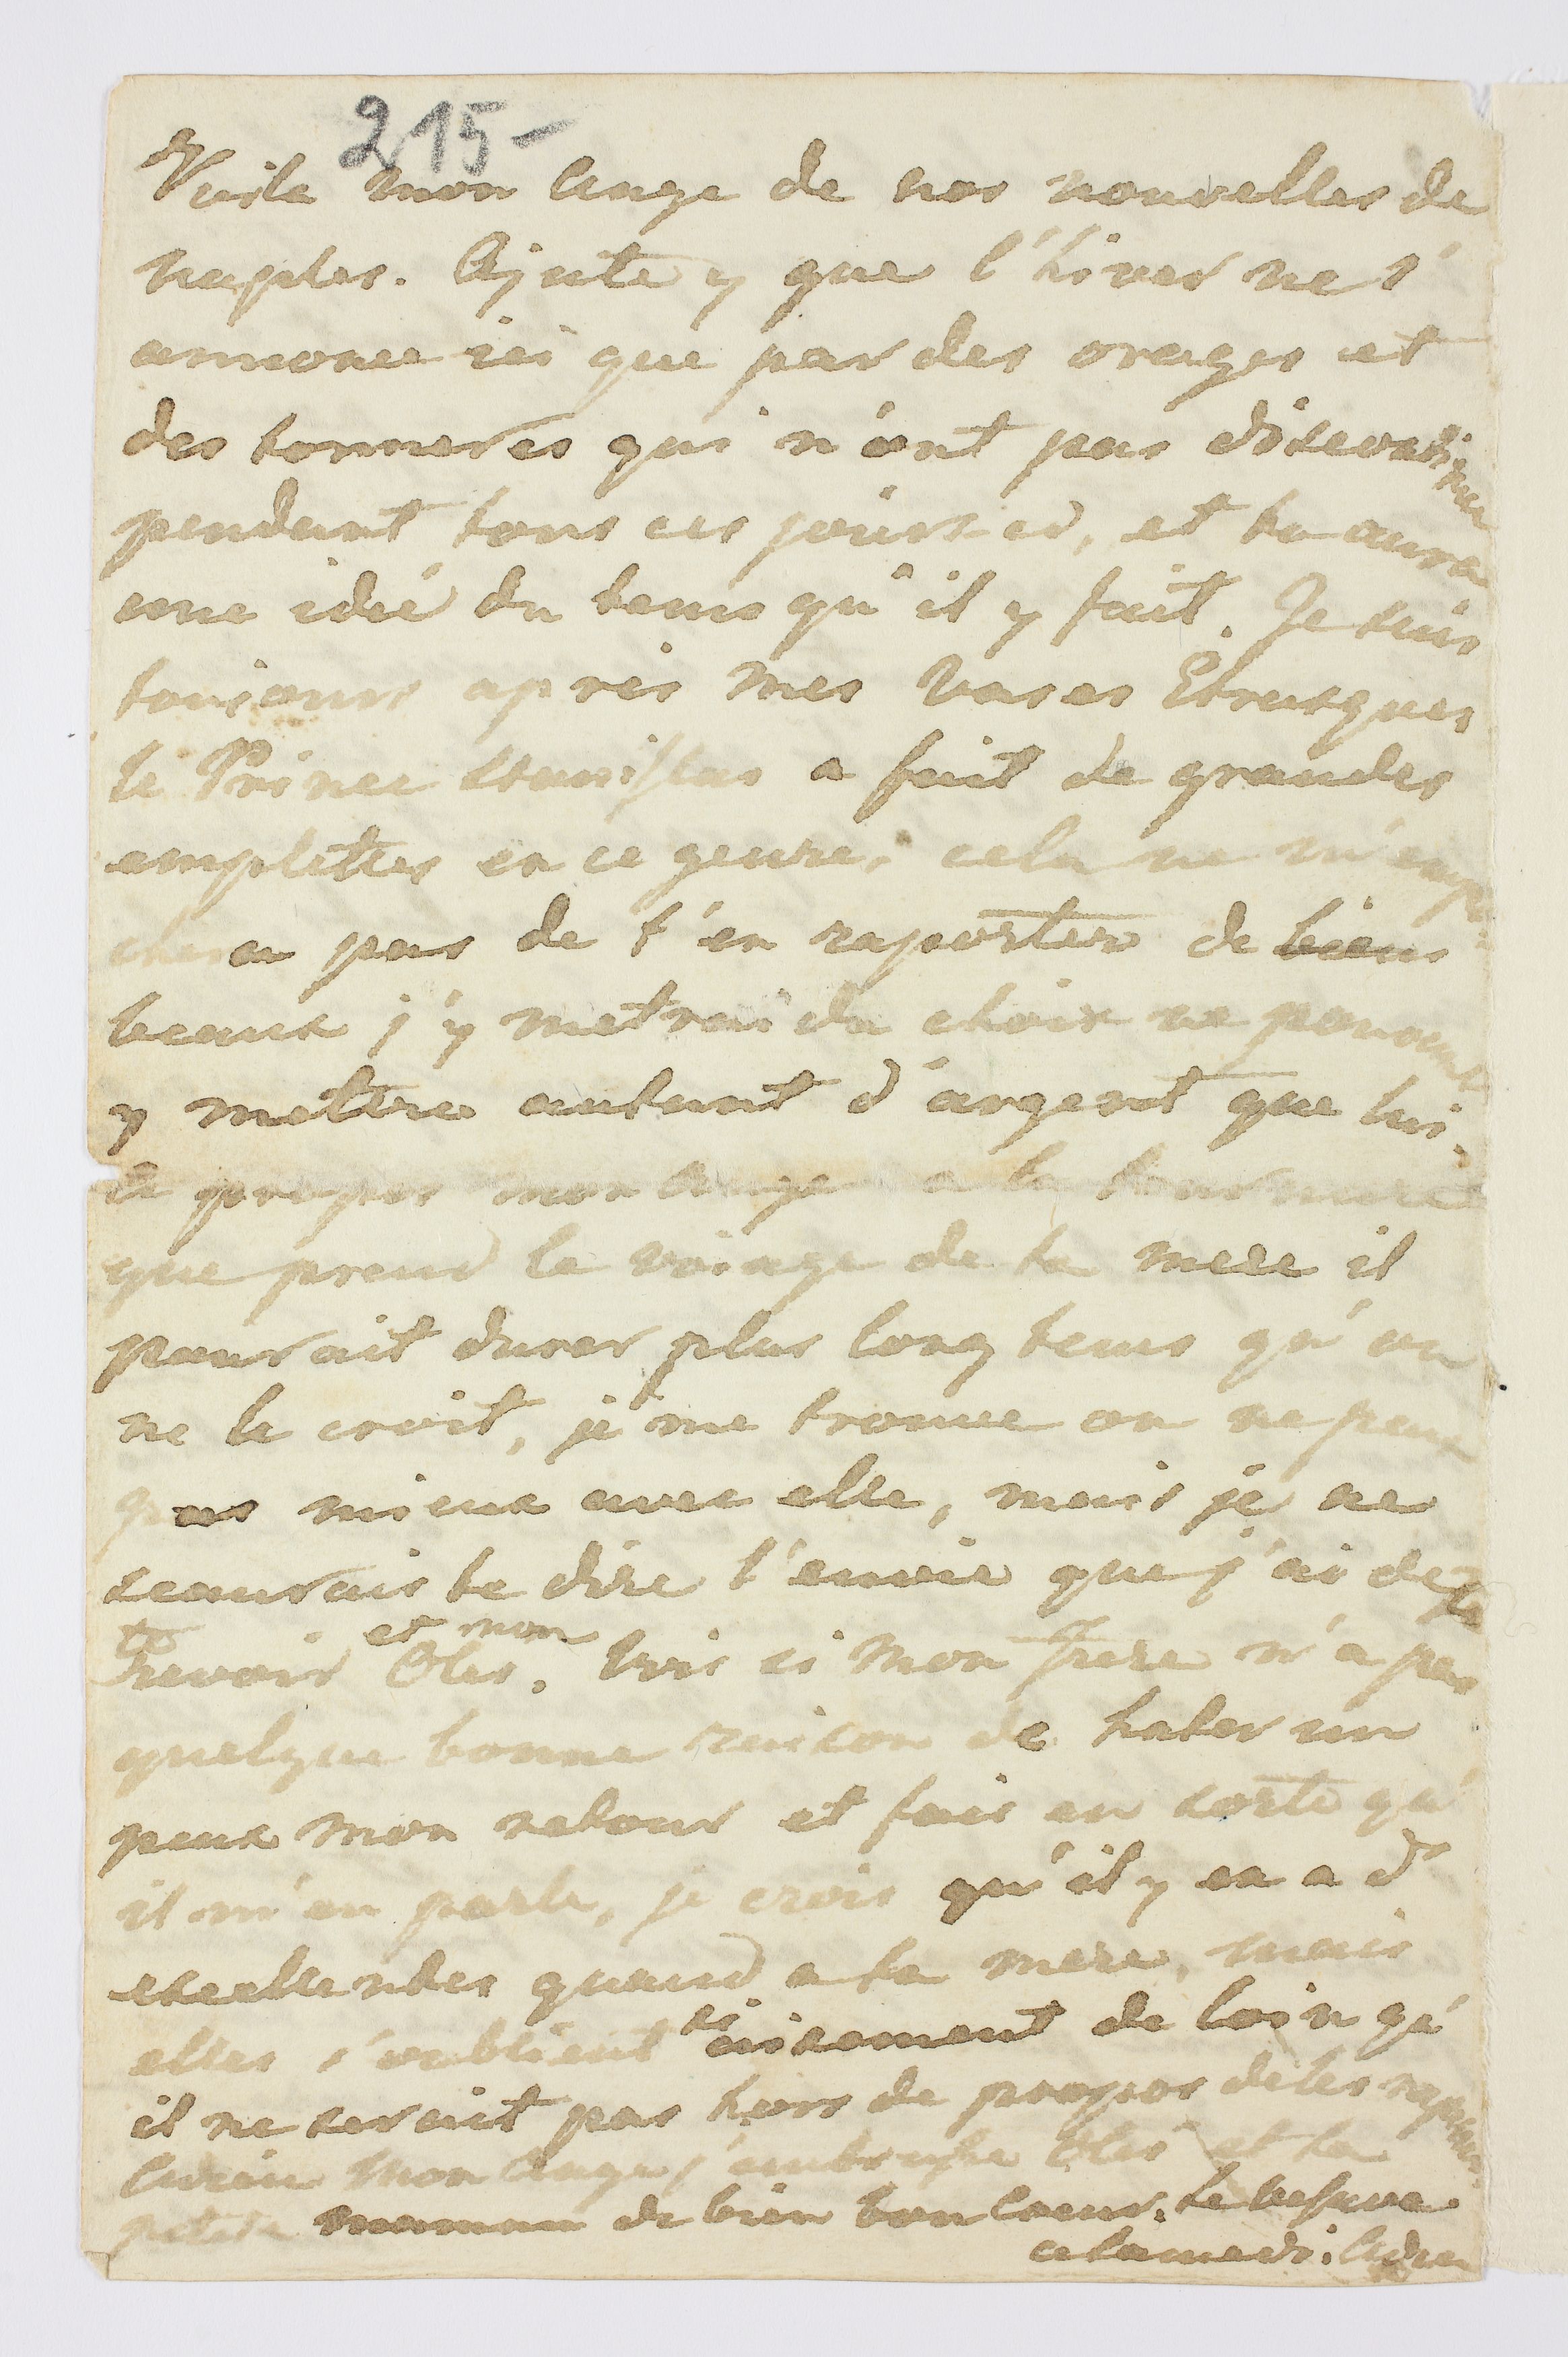 215-
Voila mon Ange de nos nouvelles de
naples. Ajute y que l'hiver ne s'
annonce ici que par des orages et
des tonneres qui n'ont pas discontinué
pendant tous ces jours ci, et tu auras
une idée du tems qu'il y fait. Je suis
toujours après mes Vases Etrusques
le Prince stanislas a fait de grandes
emplettes en ce genre, cela ne m'empe
chera pas de t'en raporter de biens
beaux j'y metrai du choix ne pouvant
y mettre autant d'argent que lui.
a propos mon ange a la tournure
que prend le voiage de ta mere il
pourait durer plus long tems qu'on
ne le croit, je me trouve on ne peux
pas mieux avec elle, mais je ne
scaurais te dire l'envie que j'ai de
te revoir et mon Oles. Vois si mon frere n'a pas
quelque bonne raison de hater un
peux mon retour et fais en sorte qu'
il m'en parle, je crois qu'il y en a d'
excellentes quand a ta mere, mais
elles s'oublient si aisement de loin qu'
il ne serait pas hors de propos de les
Adieu Mon Ange j'embrasse Oles et ta
petite maman de bien bon Coeur.